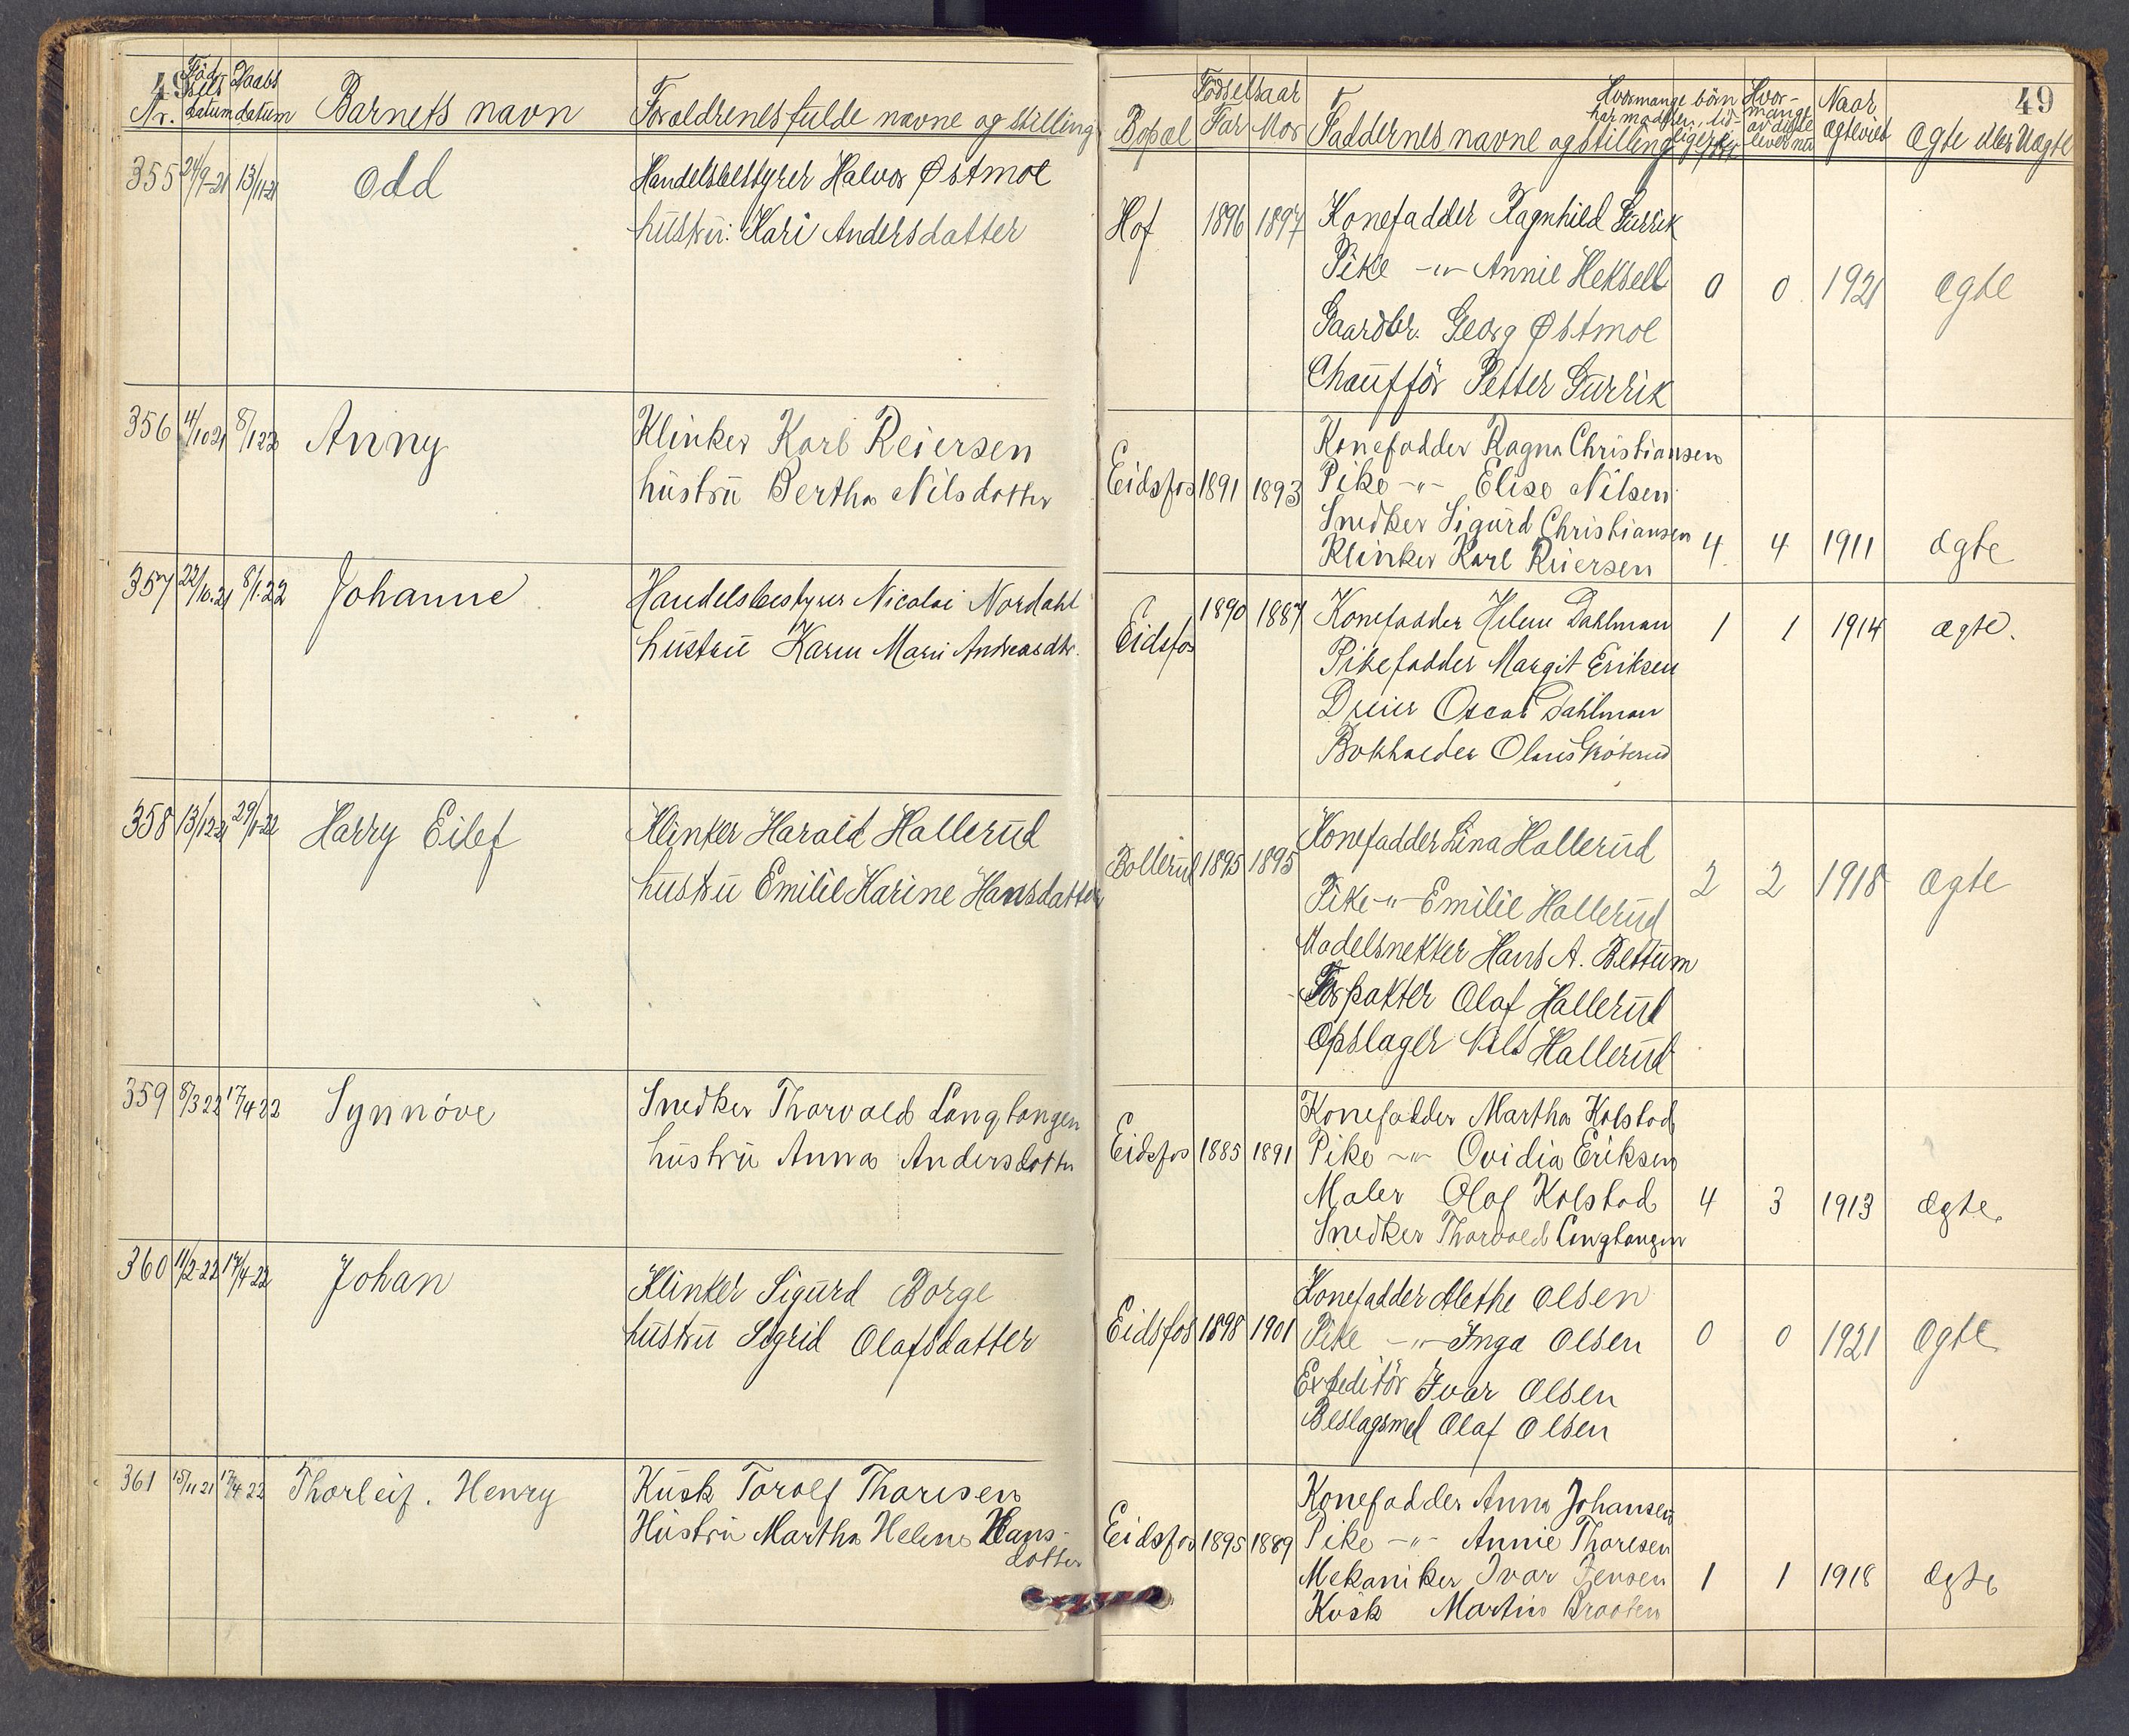 49
Nr. Fødselsdatum Daabsdatum Barnets navn Foreldrenes fulde navne og stilling
355 24/9-21 13/11-21 Odd Handelsbestyrer Halvor Østmoe
hustru: Kari Andersdatter
356 4/10 21 8/1 22 Anny Klinker Karl Reiersen
hustru Bertha Nilsdatter
357 22/10.21 8/1.22 Johanne Handelsbestyrer Nicolai Nordahl
hustru Karen Marie Andreasdtr.
358 13/12 21 29/1-22 Harry Eilef Klinker Harald Hallerud
hustru Emilie Karine Hansdatter
359 8/3 22 17/4 22 Synnöve Snedker Thorvald Langtangen
hustru Anna Andersdatter
360 11/2-22 17/4-22 Johan Klinker Sigurd Borge
hustru Sigrid Olafsdatter
361 15/11 21 17/4 22 Thorleif. Henry Kusk Torolf Thoresen
Hustru Martha Helene Hans-
datter
49
Bopæl Fødselsaar Far Mor Faddernes navne og stilling Hvormange børn har modren tidligere født Hvormange av disse lever nu Naar ægteviet Ægte eller Uægte
Hof 1896 1897 Konefadder Ragnhild Gurrik
Pike -"- Annie Heksell 0 0 1921 ægte
Gaardbr. Georg Østmoe
Chaufför Petter Gurrik
Konefadder Ragna Christiansen
Eidsfos 1891 1893 Pike -"- Elise Nilsen
Snedker Sigurd Christiansen
Klinker Karl Reiersen 4 4 1911 ægte
Eidsfos 1890 1887 Konefadder Helene Dahlman 1 1 1914 ægte.
Pikefadder Margit Eriksen
Dreier Oscar Dahlman
Bokholder Olaus
Konefadder Lina Hallerud
Bollerud 1895 1895 2 2 1918 Ægte
Pike -"- Emilie Hallerud
Modelsnekker Hans A. Bettum
Forpakter Olaf Hallerud
Opslager Nils Hallerud
Konefadder Martha Kolstad
Eidsfos 1885 1891 Pike -"- Ovidia Eriksen
Maler Olaf Kolstad 4 3 1913 Ægte.
Snedker Thorvald Langtangen
Konefadder Alethe Olsen
Eidsfos 1898 1901 Pike -"- Inga Olsen 0 0 1921 Ægte
Expeditör Ivar Olsen
Beslagsmed Olaf Olsen
Konefadder Anna Johansen
Eidsfos 1895 1889 Pike -"- Annie Thoresen
Mekaniker Ivar Jensen 1 1 1918 Ægte
Kusk Martin Braaten